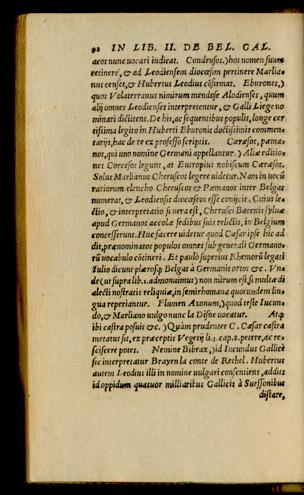 92 IN LIB. II. DE BEL. GAL.
acos nunc uocari iudicat. Condrusos.) hos nomen suum
retinere, & ad Leodiensem diocœsim pertinere Marlia-
nus censet, & Hubertus Leodius cõfirmat. Eburones,)
quos Volaterranus nimirum mendose Alodienses, quum
alij omnes Leodienses interpretentur, & Galli Liege no
minari dictitent. De his, ac sequentibus populis, longe cer
tißima legito in Huberti Eburonis doctißimis commen-
tarijs, hac de re ex professo scriptis. Cæræsos, pæma-
nos, qui uno nomine Germani appellantur.) Aliæ editio-
nes Corcesos legunt, at Eutropius nobiscum Cæræsos.
Solus Marlianus Cheruscos legere uidetur. Nam in uocũ
rariorum elencho Cheruscos & Pæmanos inter Belgas
numerat, & Leodiensis diœceseos esse conijcit. Cuius le-
ctio, & interpretatio si uera est, Cherusci Bacenis syluæ
apud Germanos accolæ sedibus suis relictis, in Belgium
concesserunt. Huc facere uidetur quod Cæsar ipse hic ad
dit, prænominatos populos omnes sub generali Germano-
rũ uocabulo cõtineri. Et paulò superius Rhemorũ legati
Iulio dicunt plærosq; Belgas à Germanis ortos &c. Vn-
de (ut supra lib.1. admonuimus) non mirum est, si multæ di
alecti nostratis reliquiæ, in semirhomana quorundam lin-
gua reperiantur. Flumen Axonum,) quod teste Iucun-
do, & Marliano uulgo nunc la Disne uocatur. Atq;
ibi castra posuit &c.) Quàm prudenter C. Cæsar castra
metatus sit, ex præceptis Vegetij li.1.cap.8.petere, ac re-
sciscere potes. Nemine Bibrax,) id Iucundus Gallicè
sic interpretatur Brayen la conte de Rethel. Hubertus
autem Leodius illi in nomine uulgari consentiens, addit:
id oppidum quatuor milliaribus Gallicis à Suessonibus
distare,